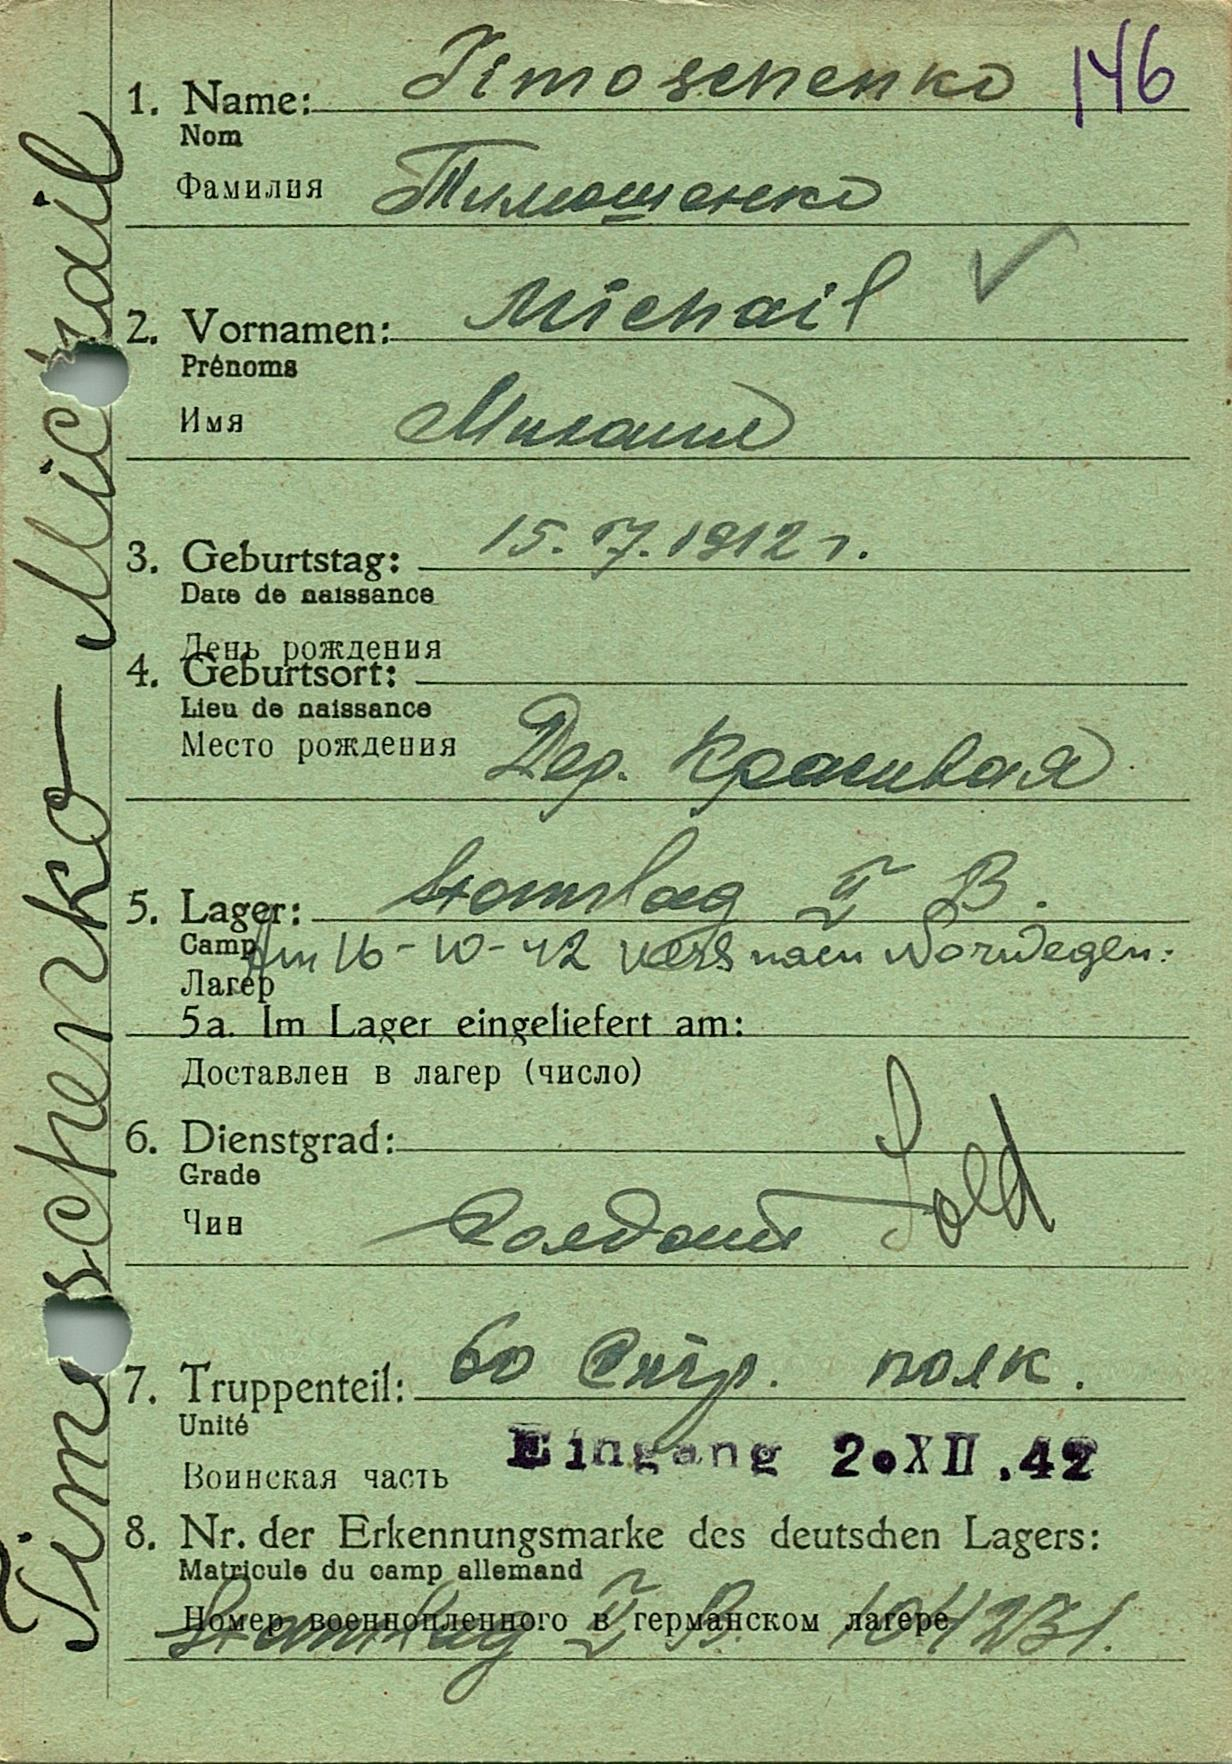 1. Name: Timoschenko 146
Nom
Фамилия Тимошенко
2. Vornamen: Michail
Prénoms
Имя Михаил
3. Geburtstag: 15.7.1912 г.
Date de naissance
День рождения
4. Geburtsort:
Lieu de naissance
Место рождения Дер. Красивая
5. Lager: Stammlag I B.
Camp Am 16-10-42 vers nach Norwegen.
Лагер
5a. Im Lager eingeliefert am:
Доставлен в лагер (число)
6. Dienstgrad:
Grade
Чин Солдат Sold
7. Truppenteil: 60 Стр. полк.
Unité
Eingang 2.XII.42
Воинская часть
8. Nr. der Erkennungsmarke des deutschen Lagers:
Matricule du camp allemand
Номер военнопленного в германском лагере
Stammlag I B.
Timoschenko Michail